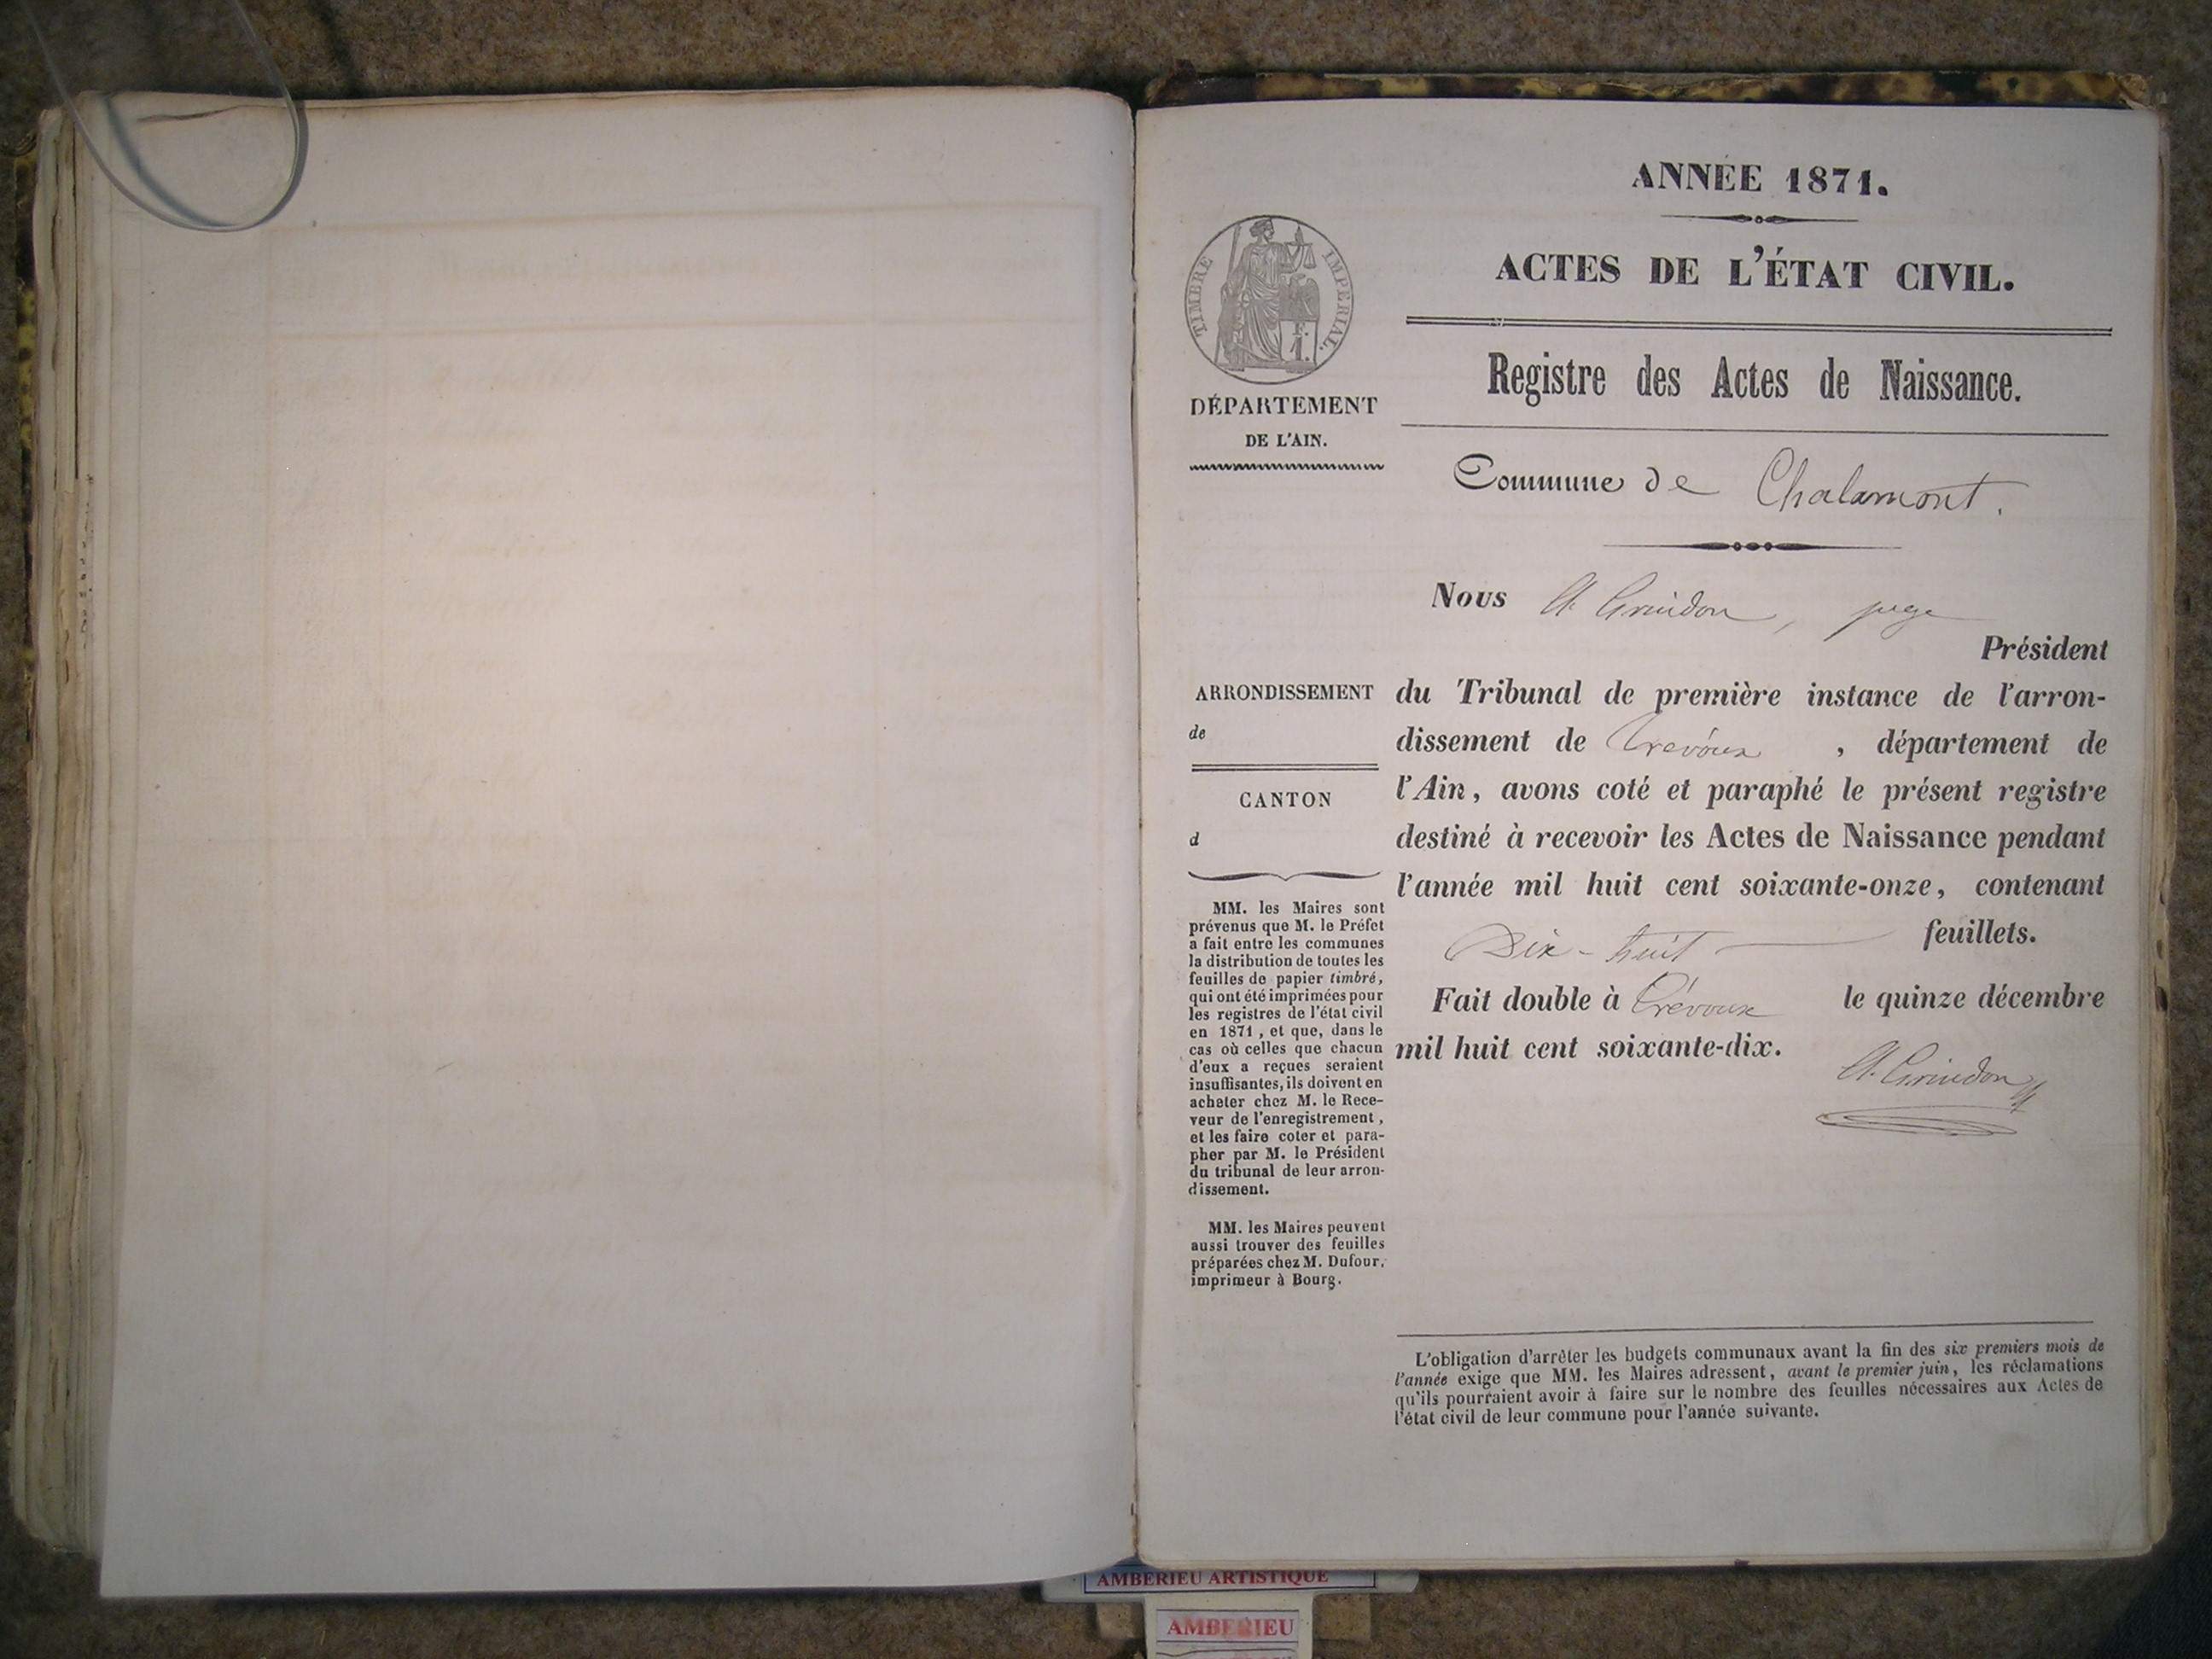 ANNÉE 1871.
ACTES DE L'ÉTAT CIVIL.
TIMBRE IMPERIAL.
Registre des Actes de Naissance.
DÉPARTEMENT
DE L'AIN.
Commune de Chalamont.
Nous A. Grindon, juge
Président
ARRONDISSEMENT
de
CANTON
d
du Tribunal de première instance de l'arron-
dissement de Trévoux , département de
l'Ain, avons coté et paraphé le présent registre
destiné à recevoir les Actes de Naissance pendant
l'année mil huit cent soixante-onze, contenant
Dix-huit feuillets.
Fait double à Trévoux le quinze décembre
mil huit cent soixante-dix.
A. Grindon
MM. les Maires sont
prévenus que M. le Préfet
a fait entre les communes
la distribution de toutes les
feuilles de papier timbré,
qui ont été imprimées pour
les registres de l'état civil
en 1871, et que, dans le
cas où celles que chacun
d'eux a reçues seraient
insuffisantes, ils doivent en
acheter chez M. le Rece-
veur de l'enregistrement,
et les faire coter et para-
pher par M. le Président
du tribunal de leur arron-
dissement.
MM. les Maires peuvent
aussi trouver des feuilles
préparées chez M. Dufour,
imprimeur à Bourg.
L'obligation d'arrêter les budgets communaux avant la fin des six premiers mois de
l'année exige que MM. les Maires adressent, avant le premier juin, les réclamations
qu'ils pourraient avoir à faire sur le nombre des feuilles nécessaires aux Actes de
l'état civil de leur commune pour l'année suivante.
AMBERIEU ARTISTIQUE
AMBERIEU